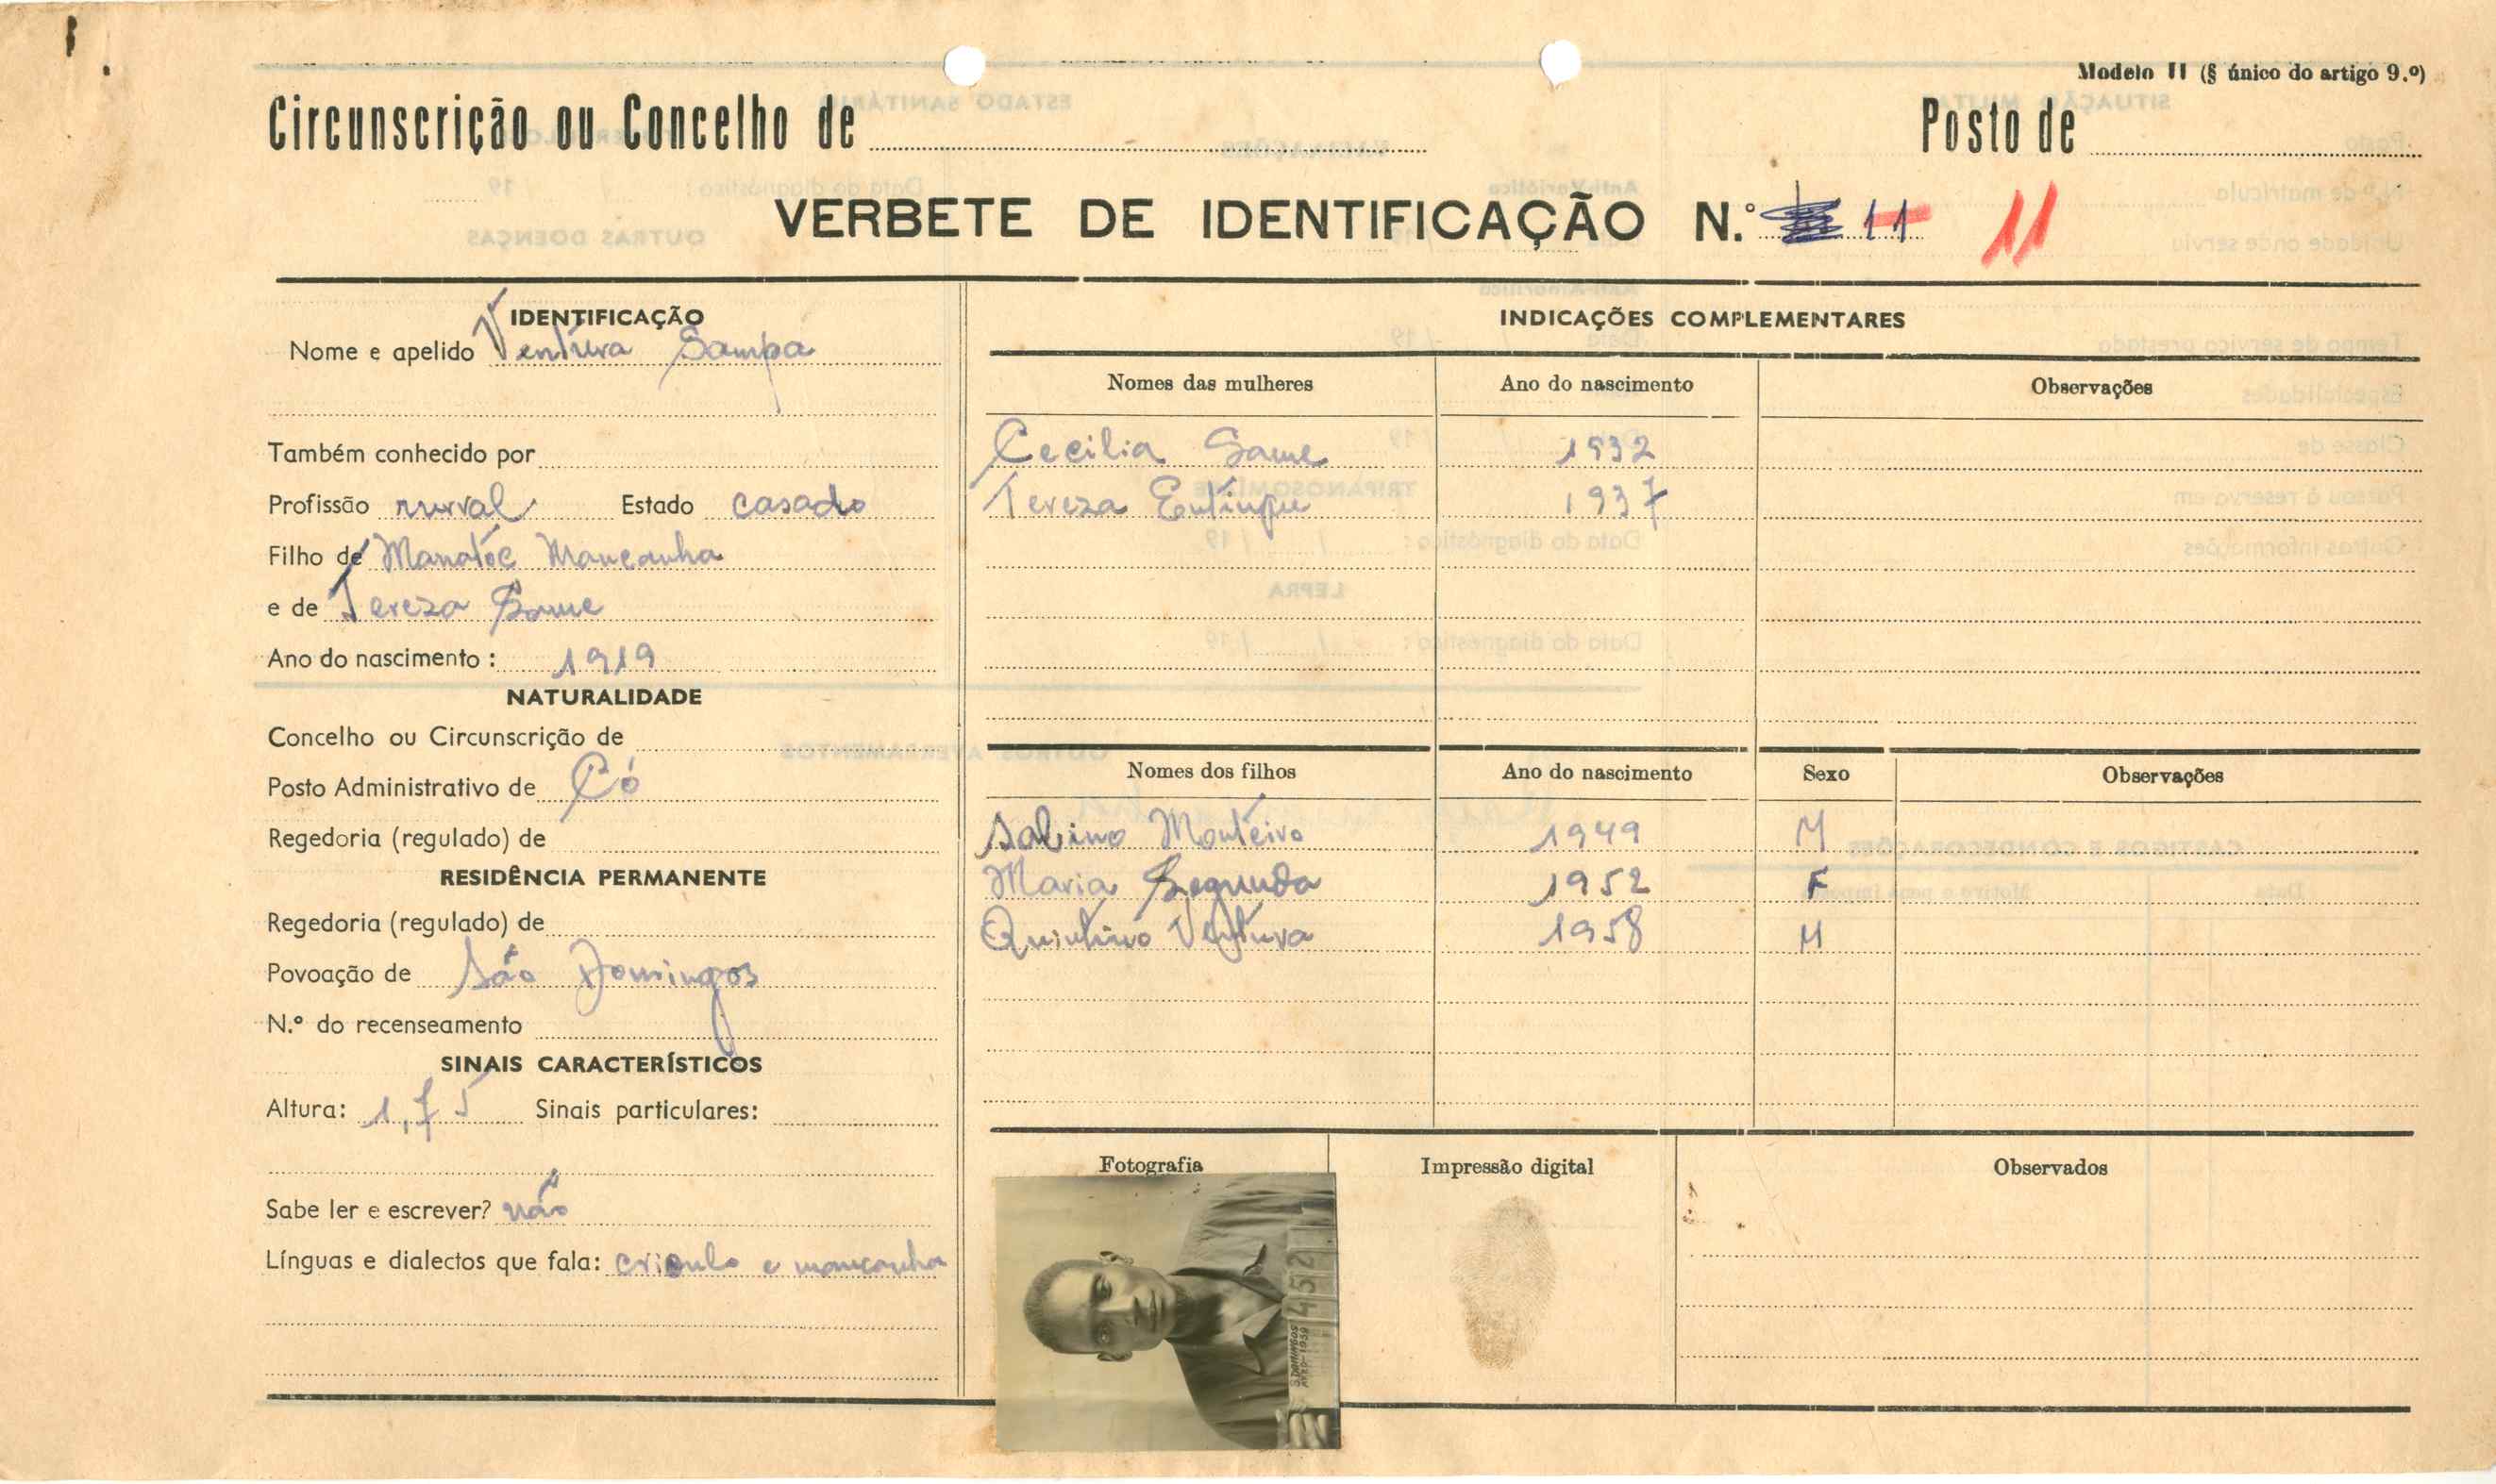 Modelo II (§ único do artigo 9.º)
Circunscrição ou Concelho de Posto de
VERBETE DE IDENTIFICAÇÃO N.º 11 11
IDENTIFICAÇÃO
Nome e apelido Ventura Sampa
Também conhecido por
Profissão rural Estado casado
Filho de Manatóc Mancanha
e de Tereza Same
Ano do nascimento: 1919
NATURALIDADE
Concelho ou Circunscrição de
Posto Administrativo de Có
Regedoria (regulado) de
RESIDÊNCIA PERMANENTE
Regedoria (regulado) de
Povoação de São Domingos
N.º do recenseamento
SINAIS CARACTERÍSTICOS
Altura: 1,75 Sinais particulares:
Sabe ler e escrever? não
Línguas e dialectos que fala: crioulo e mancanha
INDICAÇÕES COMPLEMENTARES
Nomes das mulheres Ano do nascimento Observações
Cecilia Same 1932
Tereza 1937
Nomes dos filhos Ano do nascimento Sexo Observações
Sabino Monteiro 1949 M
Maria Segunda 1952 F
Quintino Ventura 1958 M
Fotografia Impressão digital Observados
S. DOMINGOS
1452